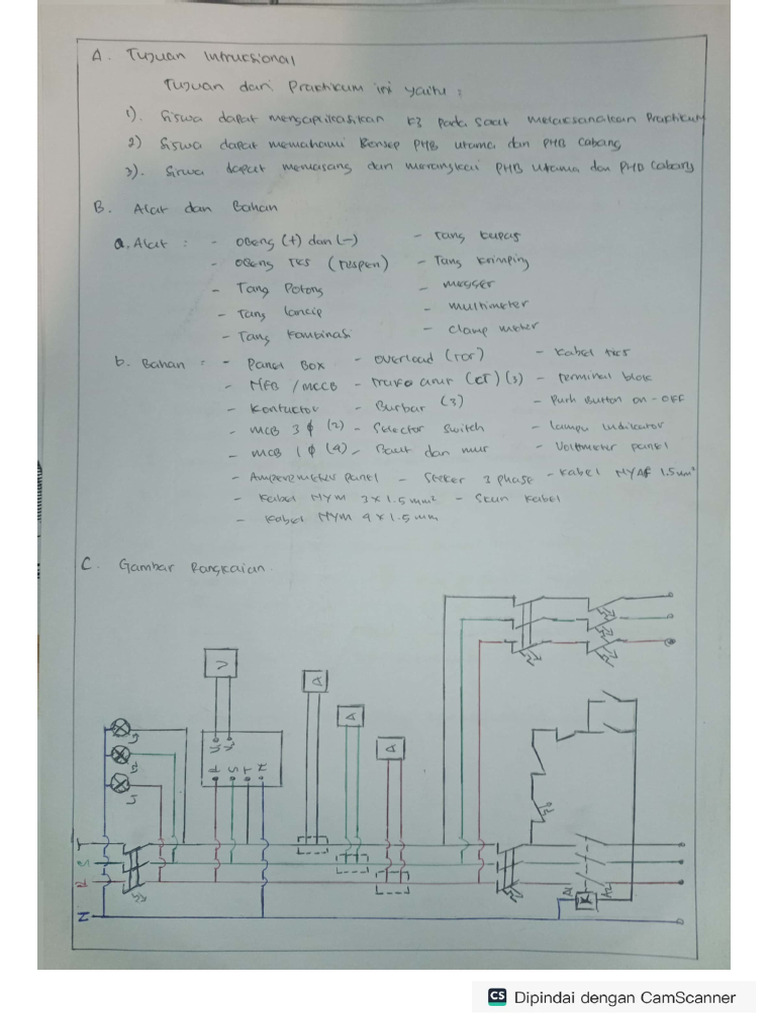 A. Tujuan Intruksional
Tujuan dari Practikum ini yaitu :
1). Siswa dapat mengaplikasikan K3 pada saat melaksanakan Practikum
2) Siswa dapat memahami Konsep PHB utama dan PHB Cabang
3). Siswa dapat memasang dan merangkai PHB utama dan PHB Cabang
B. Alat dan Bahan
a. Alat : - Obeng (+) dan (-) - Tang kupas
- Obeng TKS (Tespen) - Tang krimping
- Tang Potong - megger
- Tang lancip - multimeter
- Tang Kombinasi - Clamp meter
b. Bahan : - Panel Box - overload (TOR) - Kabel ties
- MFB / MCCB - Trafo arus (CT) (3) - Terminal blok
- Kontuctor - Busbar (3) - Push Button on - OFF
- MCB 3 ϕ (2) - Selector Switch - lampu Indikator
- MCB 1 ϕ (4) - Baut dan mur - Voltmeter panel
- Amperemeter panel - Steker 3 phase - Kabel NYAF 1.5mm²
- Kabel NYM 3 x 1.5 mm² - Skun Kabel
- Kabel NYM 4 x 1.5 mm
C. Gambar Rangkaian.
V
A
A
A
L3
L2
L1
V1 V2
R S T N
T
S
R
N
A1 A2
K
CS Dipindai dengan CamScanner